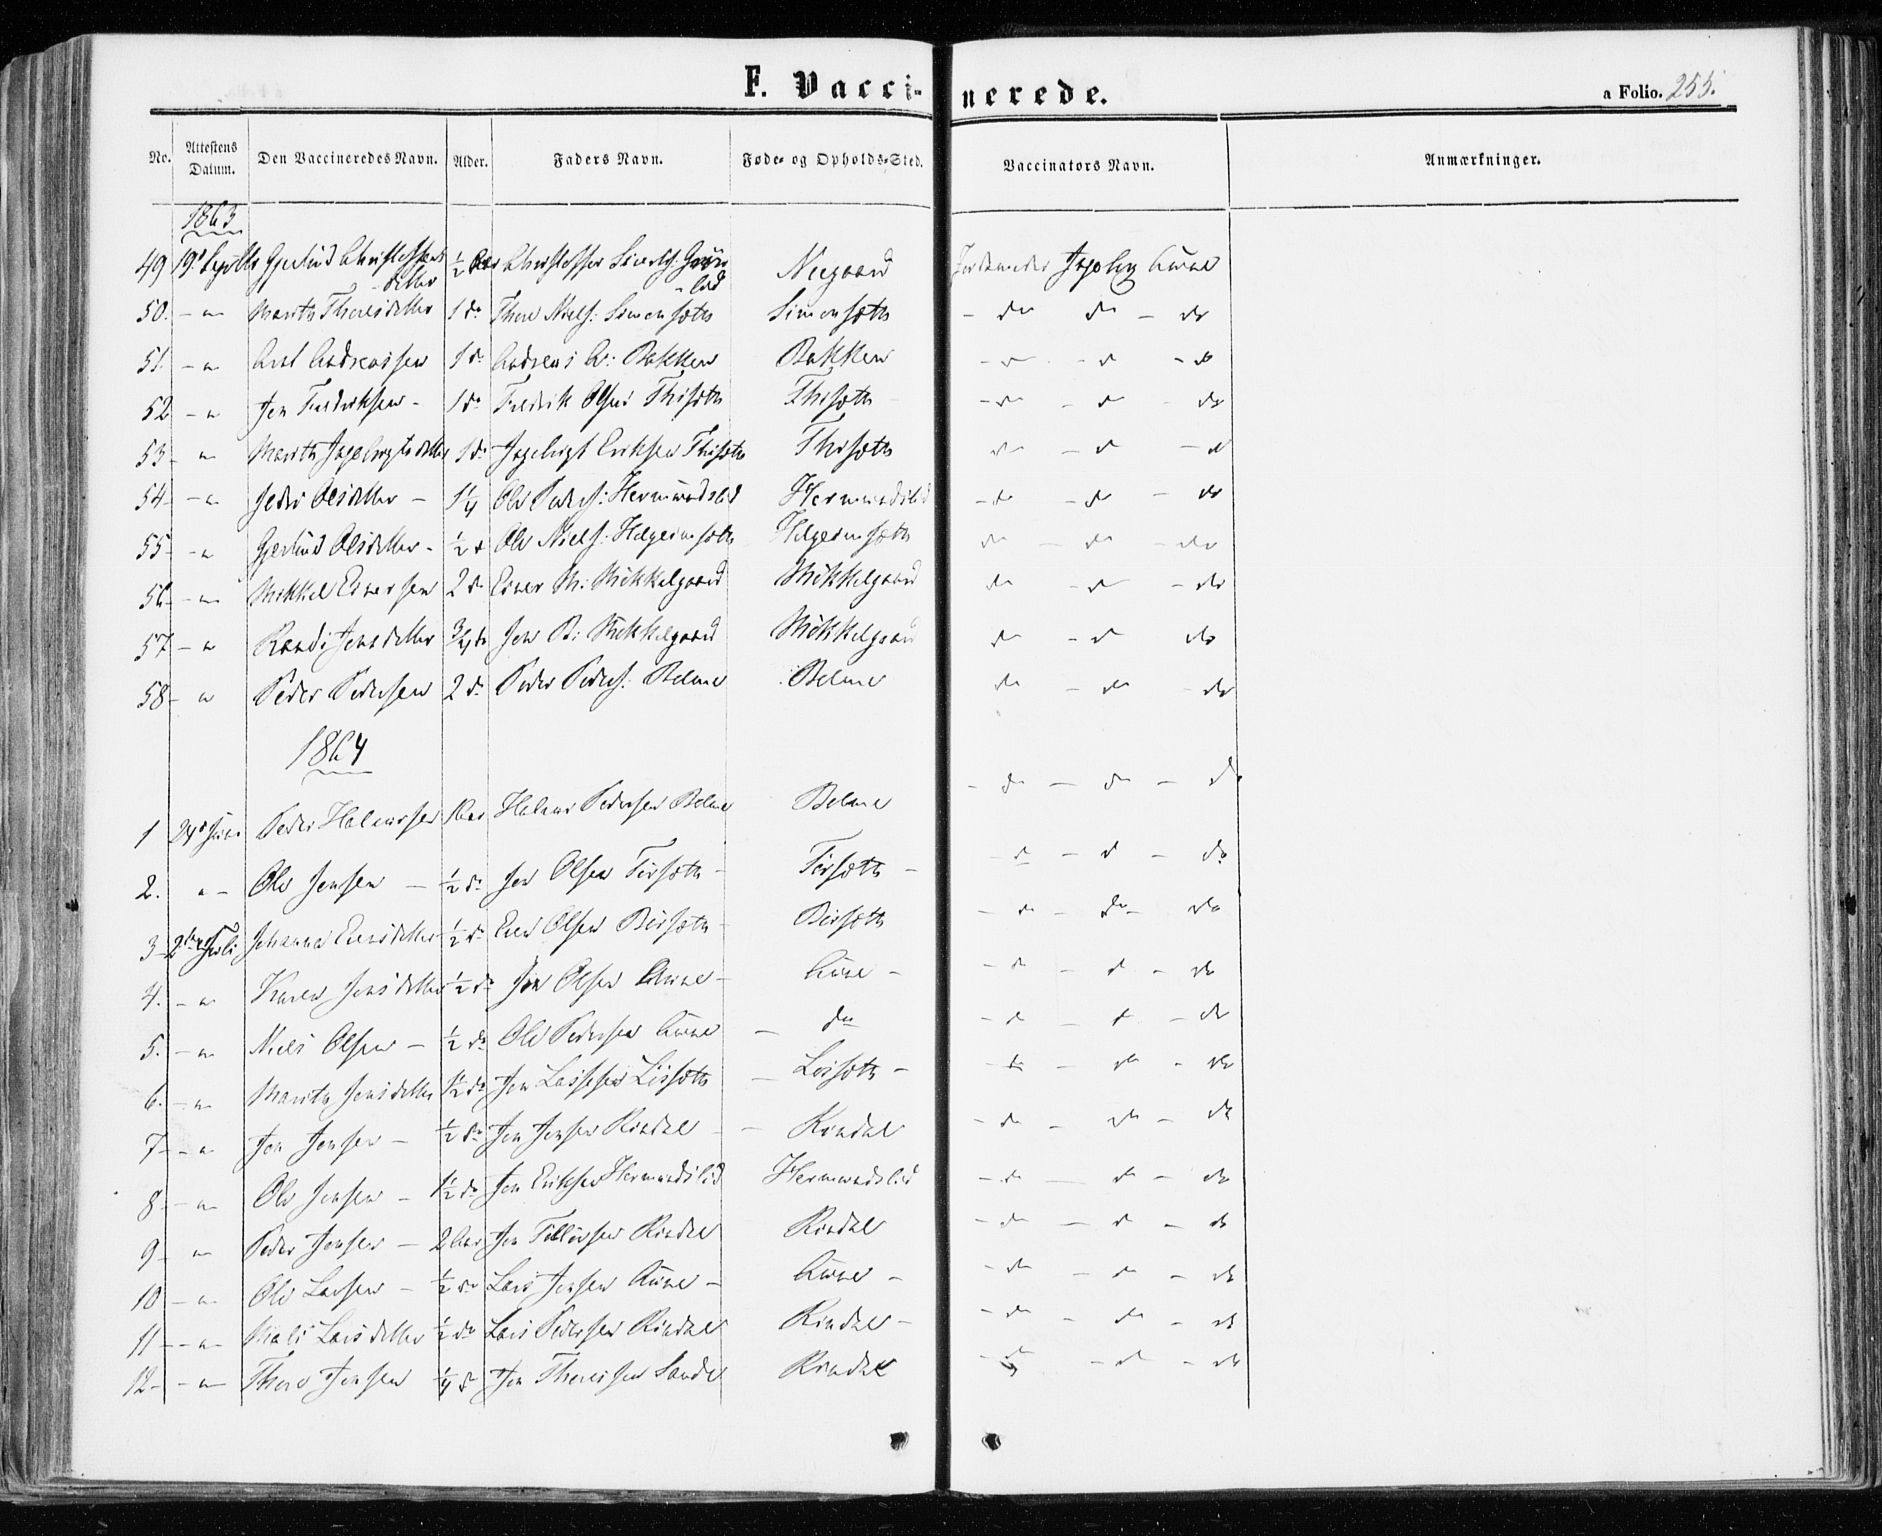 F. Vaccinerede.
a Folio. 255.
No. Attestens Datum. Den Vaccineredes Navn. Alder. Faders Navn. Føde- og Opholds-Sted. Vaccinators Navn. Anmærkninger.
1863
49 19. Septbr Gjertrud Christoffers- 1/2 Aar Christoffer Neegaard Jordemoder Ingeborg Aune
datter lid
50. - " - Marith Thoresdatter 1 do Thore Niels: Simonsæth Simonsæth - do do - do
51. - " Arnt Andreassen 1 do Andreas A: Bakken Bakken - do - do - do
52 - " Jon Fredriksen - 1 do Fredrik Olsen Thisæth Thisæth - do - do - do
53 - " Marith Ingebrigtsdatter 1 do Ingebrigt Eriksen Thisæth Thisæth do - do - do
54 - " Olsdatter - 1 1/4 Ole Peders: Hermundslid Hermundslid - do - do - do
55 - " Gjertrud Olsdatter - 1/2 d Ole Niels: Helgeimsæth Helgeimsæth do - do - do
56 - " Mikkel Einersen 2 do Einer M: Mikkelgaard Mikkelgaard do - do - do
57 - " Randi Jonsdatter 3/4 do Jon B: Mikkelgaard Mikkelgaard do - do do
58 - " Peder Pedersen 2 do Peder Peders: Bolme Bolme do - do - do
1864
1 24de Juni Peder Halvorsen 1 Aar Halvor Pedersen Bolme Bolme - do - do - do
2. " - Ole Jonsen - 1/2 do Jon Olsen Tørsæth - Tørsæth - - do - do - do
3 - 2den Juli Johanna Evensdatter 1/2 do Even Olsen Børsæth - Børsæth - do - do - do
4. - " Karen Jonsdatter 1/2 do Jon Olsen Aune - Aune - - do - do - do
5. - " Niels Olsen - 1/2 do Ole Pedersen Aune - do - do - do - do
6. - " Marith Jonsdatter 1 1/2 do Jon Larssen Løsæth - Løsæth - - do - do - do
7 - - " Jon Jonsen - 1/2 do Jon Jonsen Rindal - - Rindal - do - do - do
8 - - " Ole Jonsen - 1 1/2 do Jon Eriksen Hermundslid Hermundslid - do - do - do
9 - " Peder Jonsen - 2 Aar Jon Tollefsen Rindal Rindal - do - do - do
10 - " Ole Larsen - 1/2 do Lars Jonsen Aune - Aune - - do - do - do
11 - - " - Mali Larsdatter 1/2 do Lars Pedersen Rindal Rindal - - do - do - do
12 - - " - Thore Jonsen 1/4 d Jon Thoresen Lande Rindal - do - do - do